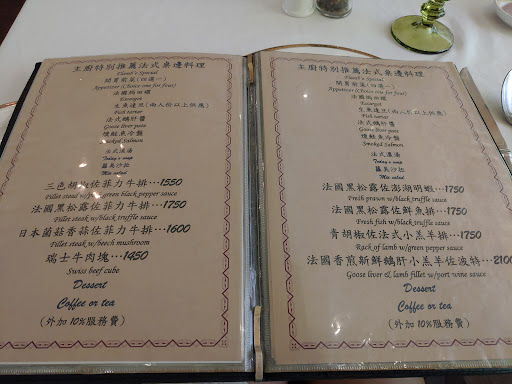 主廚特別推薦法式桌邊料理
開胃前菜(四選一)
Appetizer (Choice one for four)
法國焗田螺
Escargot
生魚達旦(兩人份以上供應)
Fish tartar
法式鵝肝醬
Goose liver pate
燻鮭魚冷盤
Smoked Salmon
法式濃湯
Today's soup
羅美沙拉
Mix salad
三色胡椒佐菲力牛排···1550
Fillet stead w/green black pepper sauce
法國黑松露佐菲力牛排···1750
Fillet steak w/black truffle sauce
日本菌菇香蒜佐菲力牛排···1600
Fillet steak w/beech mushroom
瑞士牛肉塊···1450
Swiss beef cube
Dessert
Coffee or tea
(外加 10%服務費)
主廚特別推薦法式桌邊料理
開胃前菜(四選一)
Appetizer (Choice one for four)
法國焗田螺
Escargot
生魚達旦(兩人份以上供應)
Fish tartar
法式鵝肝醬
Goose liver pate
燻鮭魚冷盤
Smoked Salmon
法式濃湯
Today's soup
羅美沙拉
Mix salad
法國黑松露佐澎湖明蝦···1750
Fresh prawn w/black truffle sauce
法國黑松露佐鮮魚排···1750
Fresh fish w/black truffle sauce
青胡椒佐法式小羔羊排···1750
Rack of lamb w/green pepper sauce
法國香煎新鮮鵝肝小羔羊佐波特···2100
Goose liver & lamb fillet w/port wine sauce
Dessert
Coffee or tea
(外加 10%服務費)